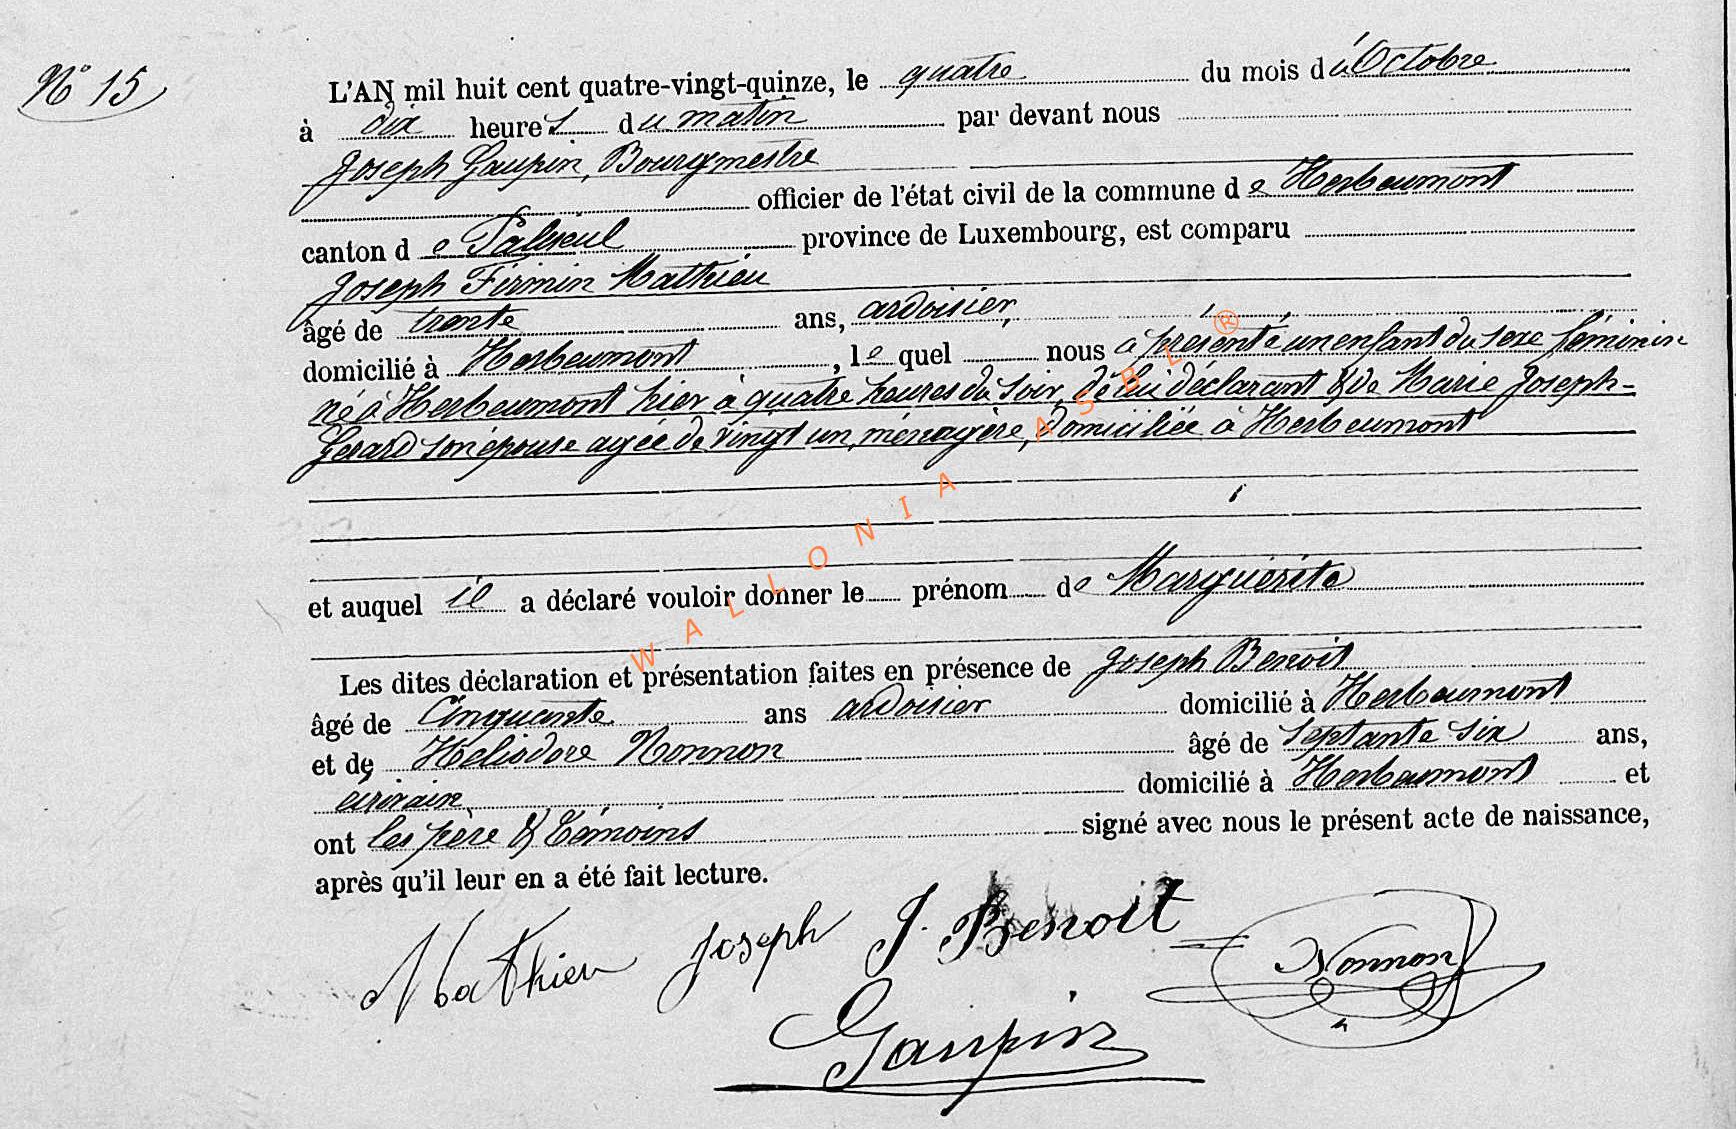 N° 15
L'AN mil huit cent quatre-vingt-quinze, le quatre du mois d'Octobre
à dix heures du matin par devant nous
Joseph Gaupin, Bourgmestre
officier de l'état civil de la commune de Herbeumont
canton de Paliseul province de Luxembourg, est comparu
Joseph Firmin Mathieu
âgé de trente ans, ardoisier,
domicilié à Herbeumont, lequel nous a présenté un enfant du sexe féminin
né à Herbeumont hier à quatre heures du soir, de lui déclarant & de Marie Joseph-
Gerard son épouse agée de vingt un, ménagère, domiciliée à Herbeumont
et auquel il a déclaré vouloir donner le prénom de Marguérite
Les dites déclaration et présentation faites en présence de Joseph Benoit
âgé de Cinquante ans ardoisier domicilié à Herbeumont
et de Héliodore Nonnon âgé de septante six ans,
écrivain domicilié à Herbeumont et
ont les père & témoins signé avec nous le présent acte de naissance,
après qu'il leur en a été fait lecture.
Mathieu Joseph J. Benoit Nonnon
Gaupin
WALLONIA ASBL ®